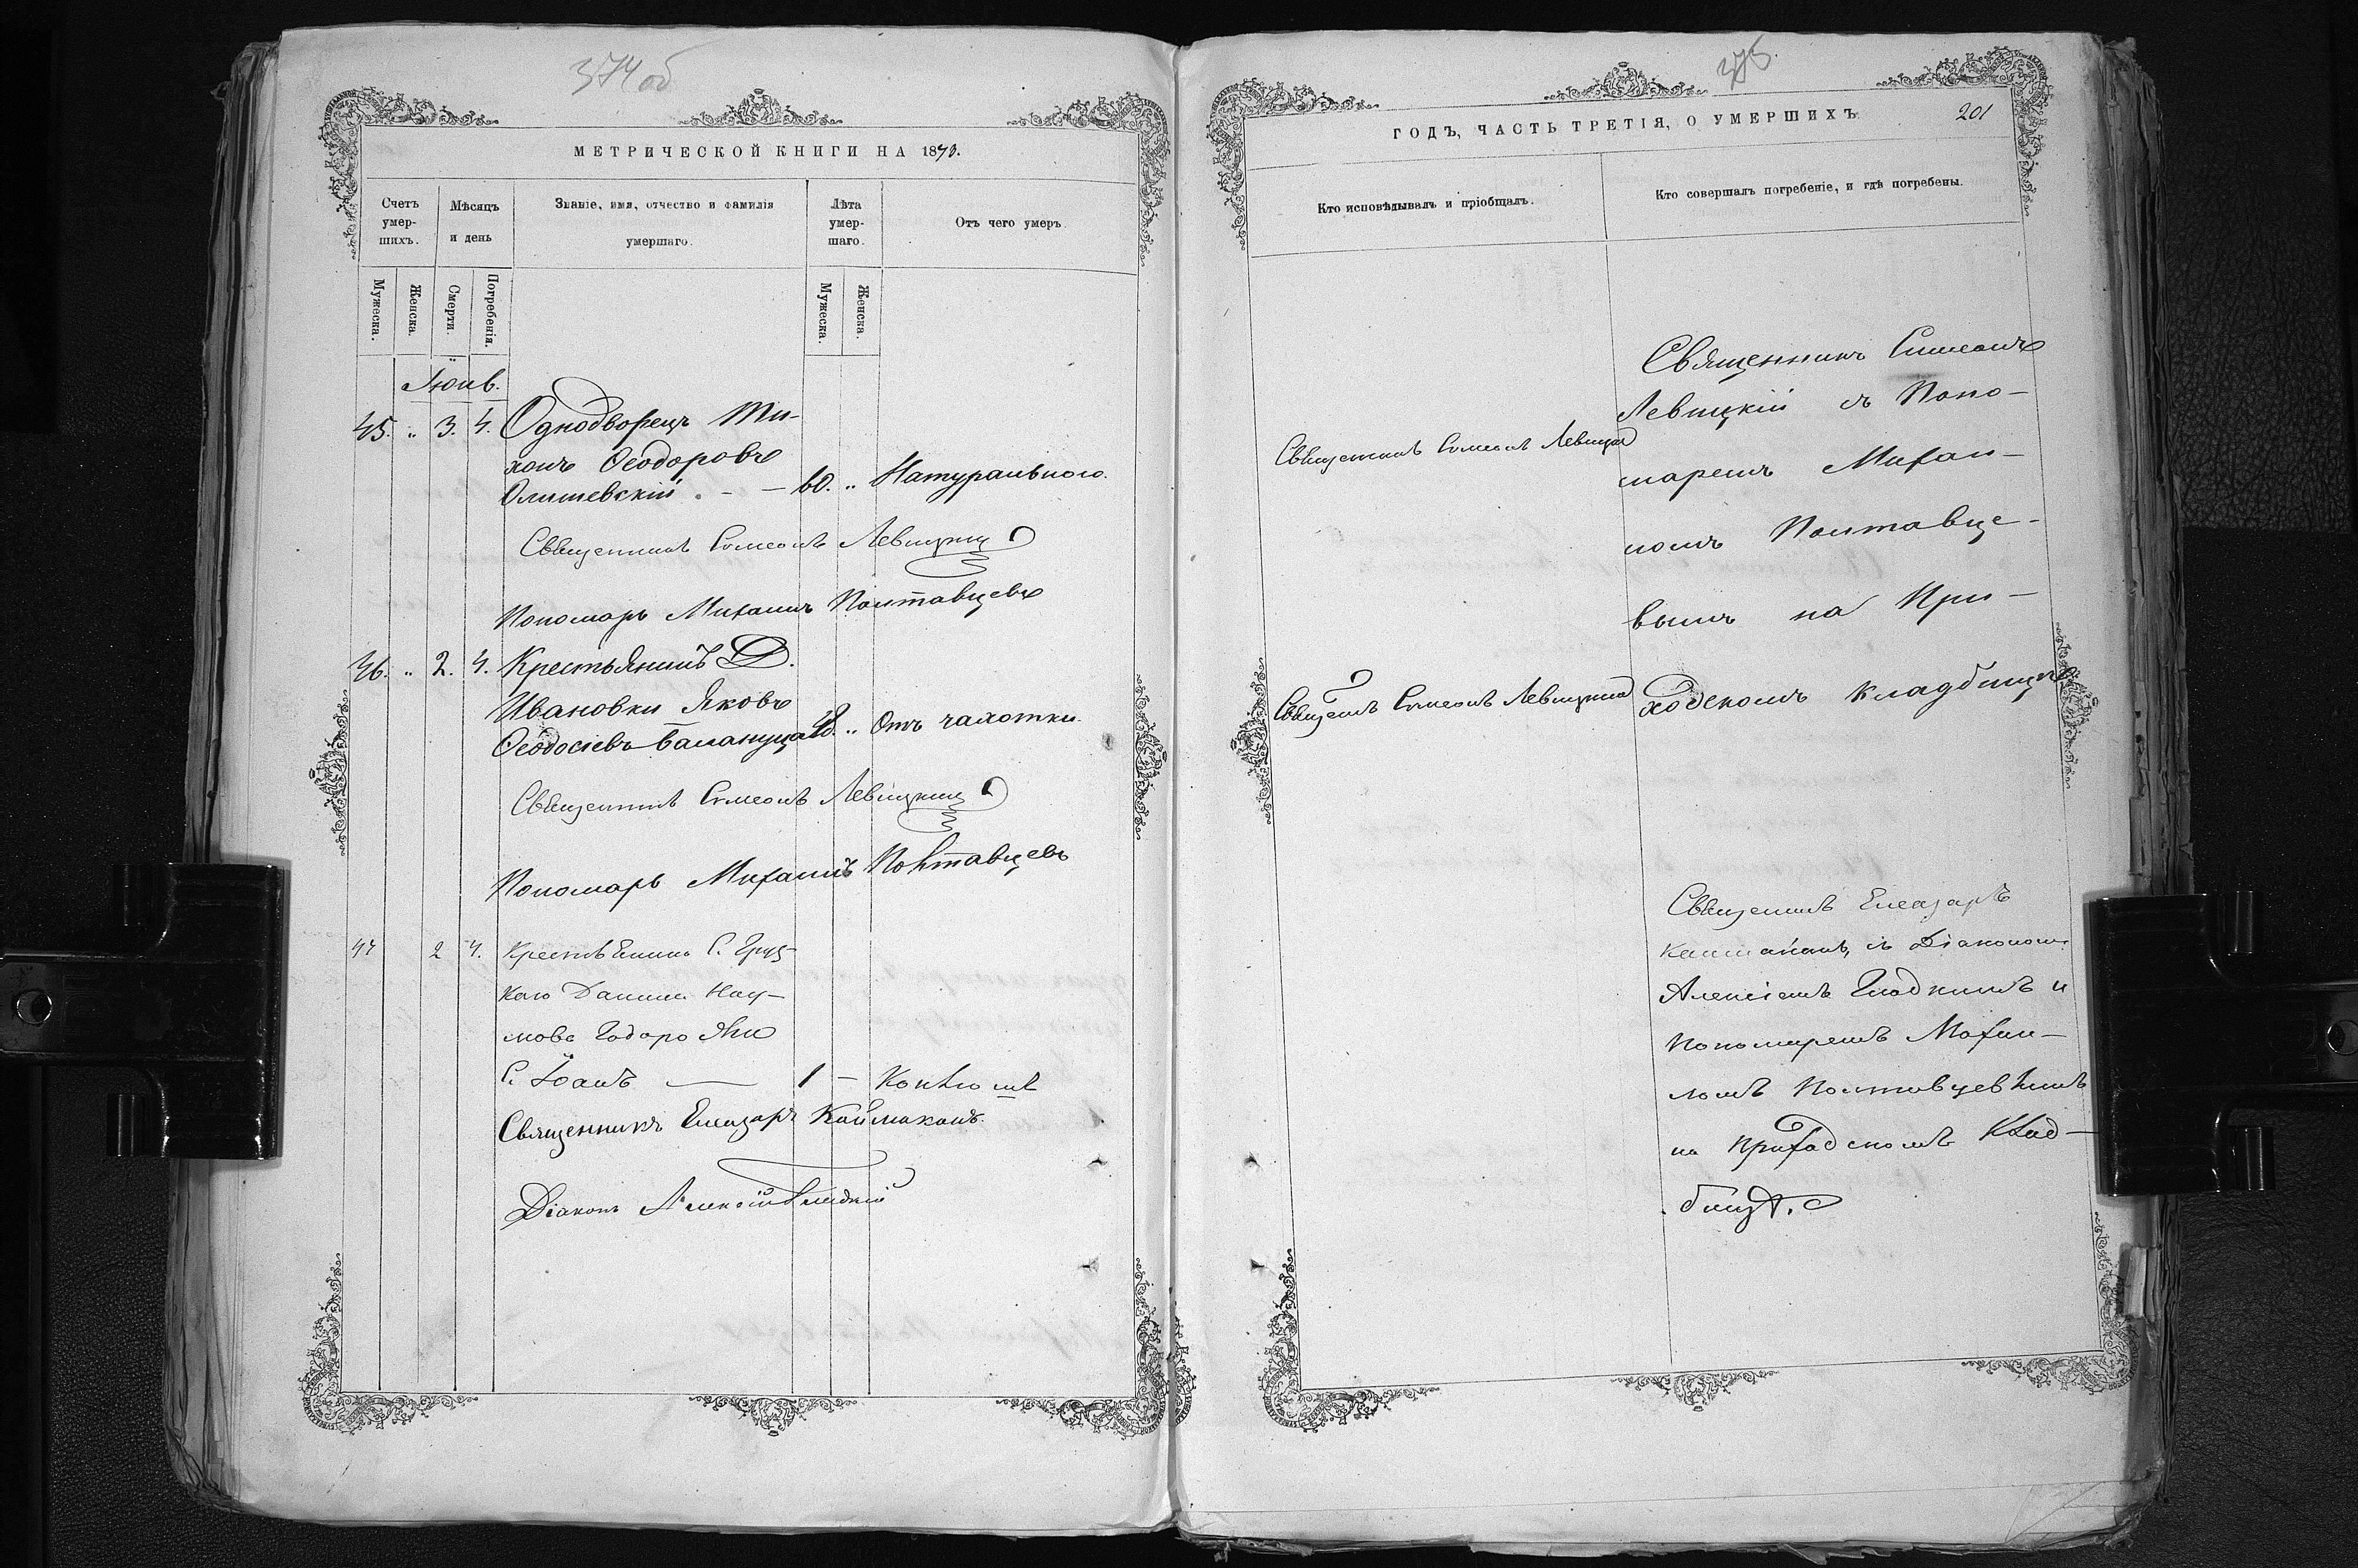 374 об
МЕТРИЧЕСКОЙ КНИГИ НА 1873.
Счетъ умер-шихъ.
Мѣсяцъ и день
Званіе, имя, отчество и фамилія умершаго.
Лѣта умер-шаго.
Отъ чего умеръ.
Мужеска.
Женска.
Смерти.
Погребенія.
Мужеска.
Женска.
Іюнь.
45. „ 3. 4. Однодворецъ Ти-
хонъ Ѳеодоровъ
Олишевскій. - - 60. „ Натурального.
Священникъ Симеонъ Левицкій
Пономарь Михаилъ Полтавцевъ
46. „ 2. 4. Крестьянинъ Д.
Ивановки Яковъ
Ѳеодосіевъ 48. „ Отъ чахотки.
Священникъ Симеонъ Левицкій
Пономарь Михаилъ Полтавцевъ
47 2 4. Крестьянина С. Груз-
каго Данила Нау-
мова
С. Іоанъ — 1 —
Священникъ Елеазаръ Каймаканъ.
Діаконъ Алексій Гладкій
201
ГОДЪ, ЧАСТЬ ТРЕТІЯ, О УМЕРШИХЪ.
Кто исповѣдывалъ и пріобщалъ.
Кто совершалъ погребеніе, и гдѣ погребены.
Священникъ Симеонъ Левицкій
Священникъ Симеонъ
Левицкій съ Поно-
маремъ Михаи-
ломъ Полтавце-
вымъ на При-
ходскомъ кладбищѣ
Священъ Симеонъ Левицкій
Священникъ Елеазаръ
Каймаканъ, съ Діакономъ
Алексіемъ Гладкимъ и
Пономаремъ Михаи-
ломъ Полтавцевымъ
на Приходскомъ Клад-
бищѣ.